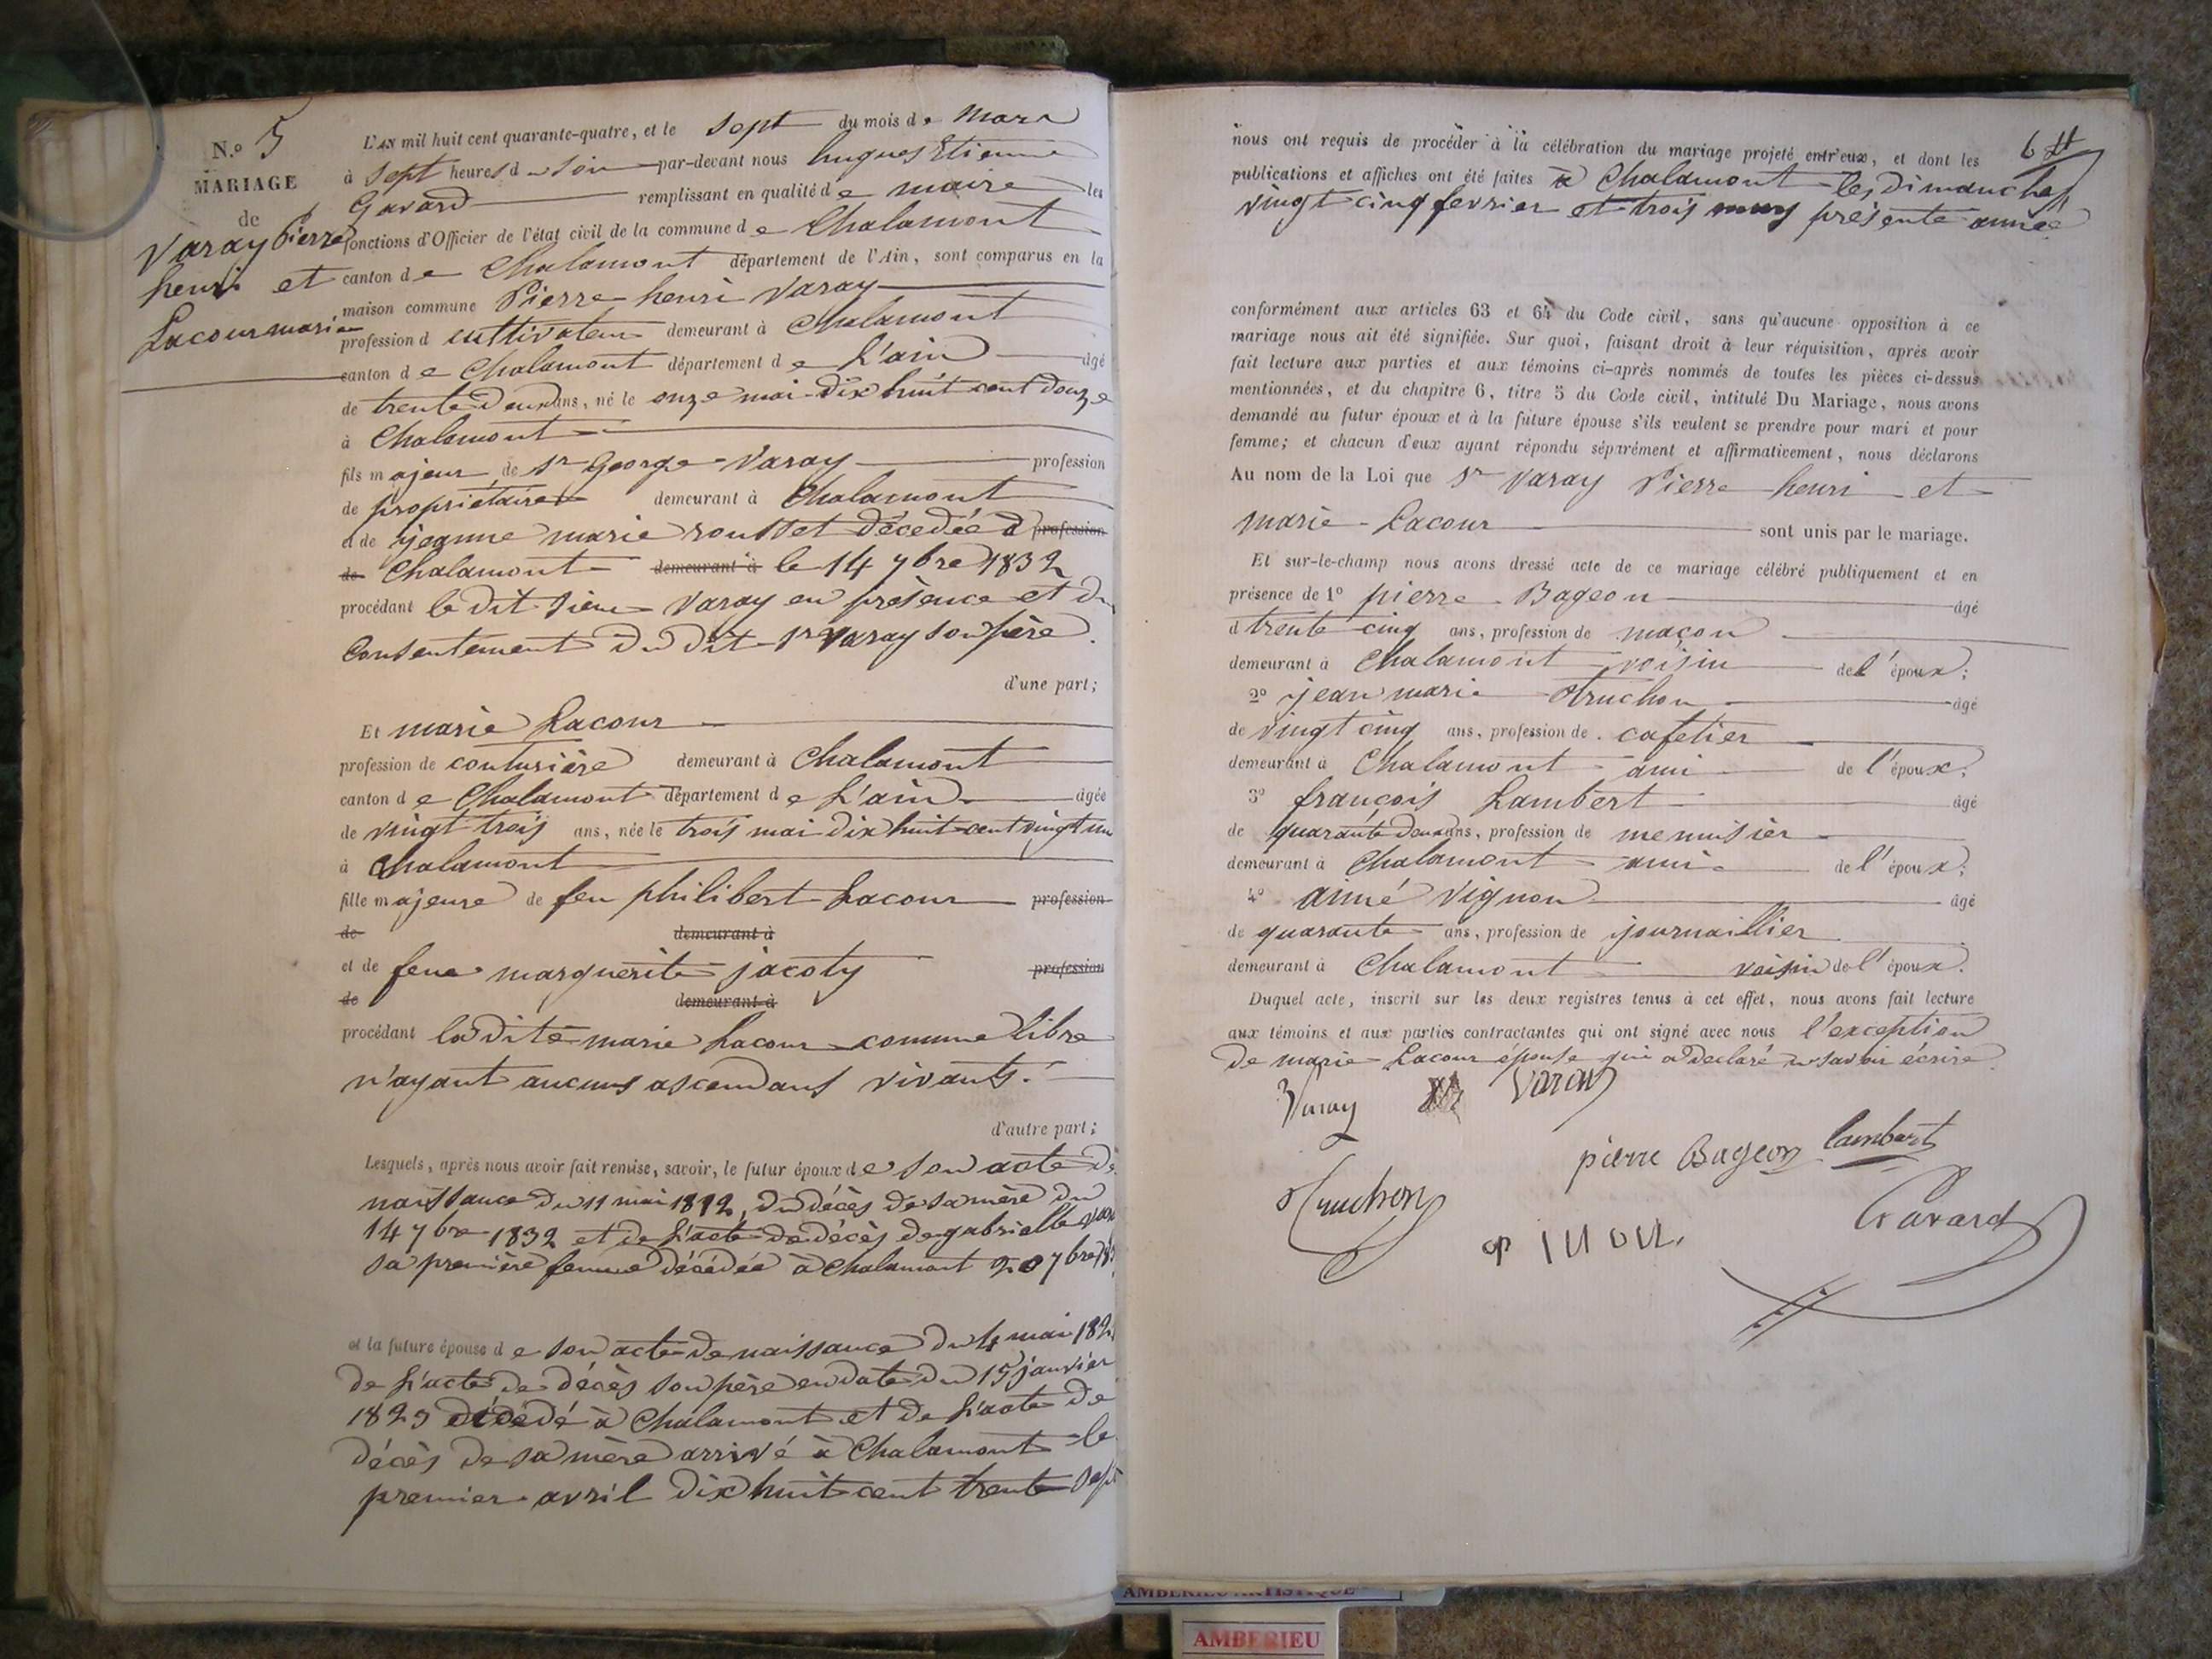 N.º 5
MARIAGE
de
Varay Pierre
henri et
Lacour marie
L'AN mil huit cent quarante-quatre, et le sept du mois de mars
à sept heures du soir par-devant nous hugues Etienne
Gavard remplissant en qualité de maire les
fonctions d'Officier de l'état civil de la commune de Chalamont
canton de Chalamont département de l'Ain, sont comparus en la
maison commune Pierre henri Varay
profession d cultivateur demeurant à Chalamont
canton de Chalamont département de L'ain âgé
de trente deux ans, né le onze mai dix huit cent douze
à Chalamont
fils majeur de Sr George Varay profession
de propriétaire demeurant à Chalamont
et de jeanne marie roustet décédée à profession
de Chalamont demeurant à le 14 7bre 1832
procédant le dit sieur Varay en présence et du
Consentement du dit Sr Varay son père.
d'une part;
Et marie Lacour
profession de couturière demeurant à Chalamont
canton de Chalamont département de L'ain âgée
de vingt trois ans, née le trois mai dix huit cent vingt un
à Chalamont
fille majeure de feu philibert Lacour profession
de demeurant à
et de feue marguerite jacoty profession
de demeurant à
procédant la dite marie Lacour comme libre
n'ayant aucuns ascendans vivants.
d'autre part;
Lesquels, après nous avoir fait remise, savoir, le futur époux de son acte de
naissance du 11 mai 1812, du décès de sa mère du
14 7bre 1832 et de L'acte de décès de gabrielle
sa première femme décédée à Chalamont 20 7bre
et la future épouse de son acte de naissance du 4 mai 182
de L'acte de décès son père en date du 15 janvier
1829 décédé à Chalamont et de L'acte de
décès de sa mère arrivé à Chalamont le
premier avril dix huit cent trente sept
6
nous ont requis de procéder à la célébration du mariage projeté entr'eux, et dont les
publications et affiches ont été faites à Chalamont les dimanches
vingt cinq fevrier et trois mars présente année
conformément aux articles 63 et 64 du Code civil, sans qu'aucune opposition à ce
mariage nous ait été signifiée. Sur quoi, faisant droit à leur réquisition, après avoir
fait lecture aux parties et aux témoins ci-après nommés de toutes les pièces ci-dessus
mentionnées, et du chapitre 6, titre 5 du Code civil, intitulé Du Mariage, nous avons
demandé au futur époux et à la future épouse s'ils veulent se prendre pour mari et pour
femme; et chacun d'eux ayant répondu séparément et affirmativement, nous déclarons
Au nom de la Loi que Sr Varay Pierre henri et
marie Lacour sont unis par le mariage.
Et sur-le-champ nous avons dressé acte de ce mariage célébré publiquement et en
présence de 1º pierre Bageon âgé
d trente cinq ans, profession de maçon
demeurant à Chalamont voisin de l'époux;
2º jean marie truchon âgé
de vingt cinq ans, profession de cafetier
demeurant à Chalamont ami de l'époux;
3º françois Lambert âgé
de quarante deux ans, profession de menuisier
demeurant à Chalamont ami de l'époux;
4º aimé Vignon âgé
de quarante ans, profession de journaillier
demeurant à Chalamont voisin de l'époux.
Duquel acte, inscrit sur les deux registres tenus à cet effet, nous avons fait lecture
aux témoins et aux parties contractantes qui ont signé avec nous l'exception
de marie Lacour épouse qui a déclaré ne savoir écrire
Varay Varay
pierre Bageon lambert
truchon
Gavard
AMBERIEU ARTISTIQUE
AMBERIEU